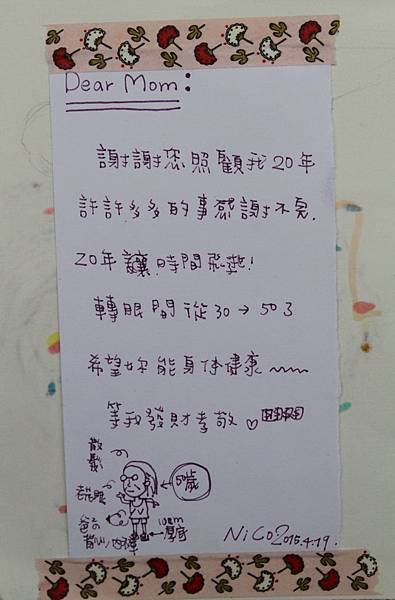 Dear Mom:
謝謝您照顧我20年
許許多多的事感謝不完.
20年讓時間飛逝!
轉眼間從30→50了
希望妳能身体健康~~~
等我發財孝敬♡
散髮
老花眼
50歲
10cm
厚底
NiCo 2015.4.19.